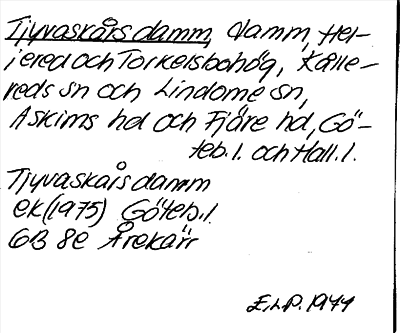 Tjyvaskårs damm, damm, Hel-
jered och Torkelsbohög, Kålle-
reds sn och Lindome sn,
Askims hd och Fjäre hd, Gö-
teb. l. och Hall. l.
Tjyvaskårs damm
ek (1975) Göteb. l.
6B 8e Årekärr
E.L.P. 1977